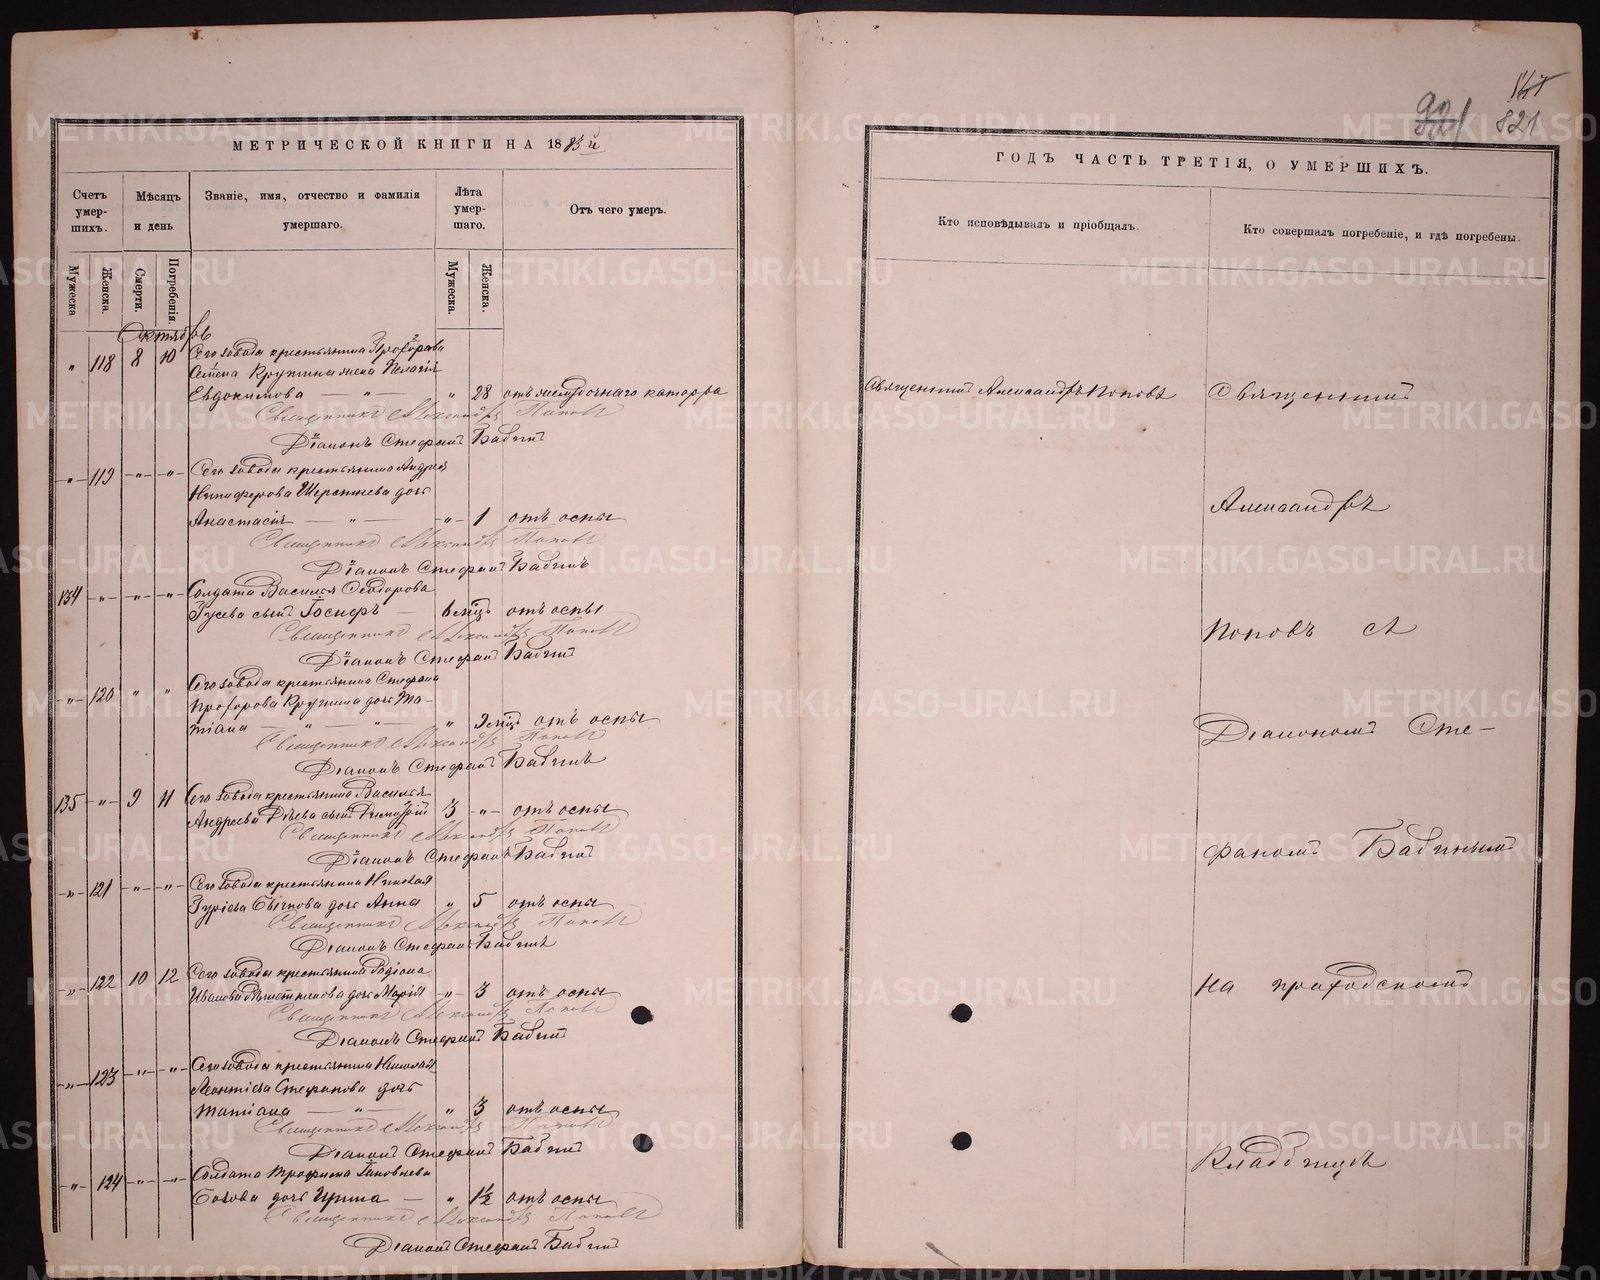 МЕТРИЧЕСКОЙ КНИГИ НА 1883й
Счетъ умер-шихъ.
Мѣсяцъ и день
Званіе, имя, отчество и фамилія умершаго.
Лѣта умер-шаго.
Отъ чего умеръ.
Мужеска
Женска.
Смерти.
Погребенія.
Мужеска.
Женска.
Октябрь
" 118 8 10 Сего завода крестьянина Прохорова
Семена Крупина жена Пелагія
Евдокимова — " — " 28 отъ желудочнаго катарра
Священникъ Александръ Поповъ
Діаконъ Стефанъ Бабинъ
" 119 " " Сего завода крестьянина Андрея
Никифорова Шерстнева дочь
Анастасія — " — " 1 отъ оспы
Священникъ Александръ Поповъ
Діаконъ Стефанъ Бабинъ
134 " " " Солдата Василья Ѳеодорова
Гусева сынъ Іосифъ — 6 мцъ отъ оспы
Священникъ Александръ Поповъ
Діаконъ Стефанъ Бабинъ
" 120 " " Сего завода крестьянина Стефана
Прохорова Крупина дочь Та-
тіана — " — " — " 9 мцъ отъ оспы
Священникъ Александръ Поповъ
Діаконъ Стефанъ Бабинъ
135 " 9 11 Сего завода крестьянина Василья
Андреева сынъ Димитрій 3 " отъ оспы
Священникъ Александръ Поповъ
Діаконъ Стефанъ Бабинъ
" 121 " " Сего завода крестьянина Николая
Гуріева Бычкова дочь Анна " 5 отъ оспы
Священникъ Александръ Поповъ
Діаконъ Стефанъ Бабинъ
" 122 10 12 Сего завода крестьянина Родіона
Иванова дочь Марія " 3 отъ оспы
Священникъ Александръ Поповъ
Діаконъ Стефанъ Бабинъ
" 123 " " Сего завода крестьянина Николая
Леонтіева Стефанова дочь
Татіана — " — " 3 отъ оспы
Священникъ Александръ Поповъ
Діаконъ Стефанъ Бабинъ
" 124 " " Солдата Трофима
дочь Ирина — " 1½ отъ оспы
Священникъ Александръ Поповъ
Діаконъ Стефанъ Бабинъ
821
ГОДЪ ЧАСТЬ ТРЕТІЯ, О УМЕРШИХЪ.
Кто исповѣдывалъ и пріобщалъ.
Кто совершалъ погребеніе, и гдѣ погребены.
Священникъ Александръ Поповъ
Священникъ
Александръ
Поповъ съ
Діакономъ Сте-
фаномъ Бабинымъ
на приходскомъ
кладбищѣ
METRIKI.GASO-URAL.RU